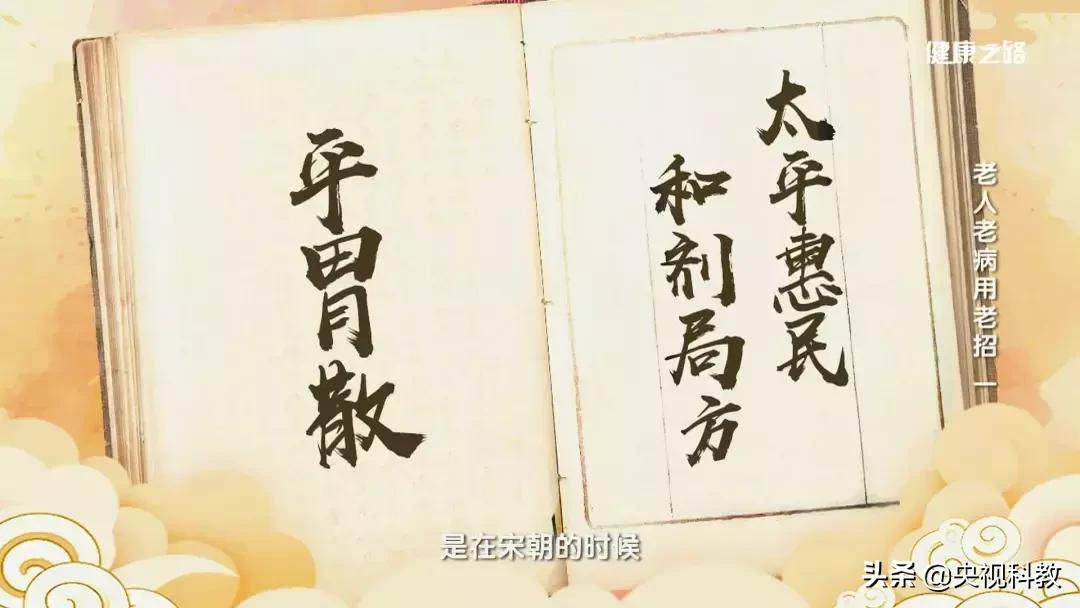 健康之路
太平惠民
和剂局方
平胃散
老人老病用老招 一
是在宋朝的时候
头条 @央视科教